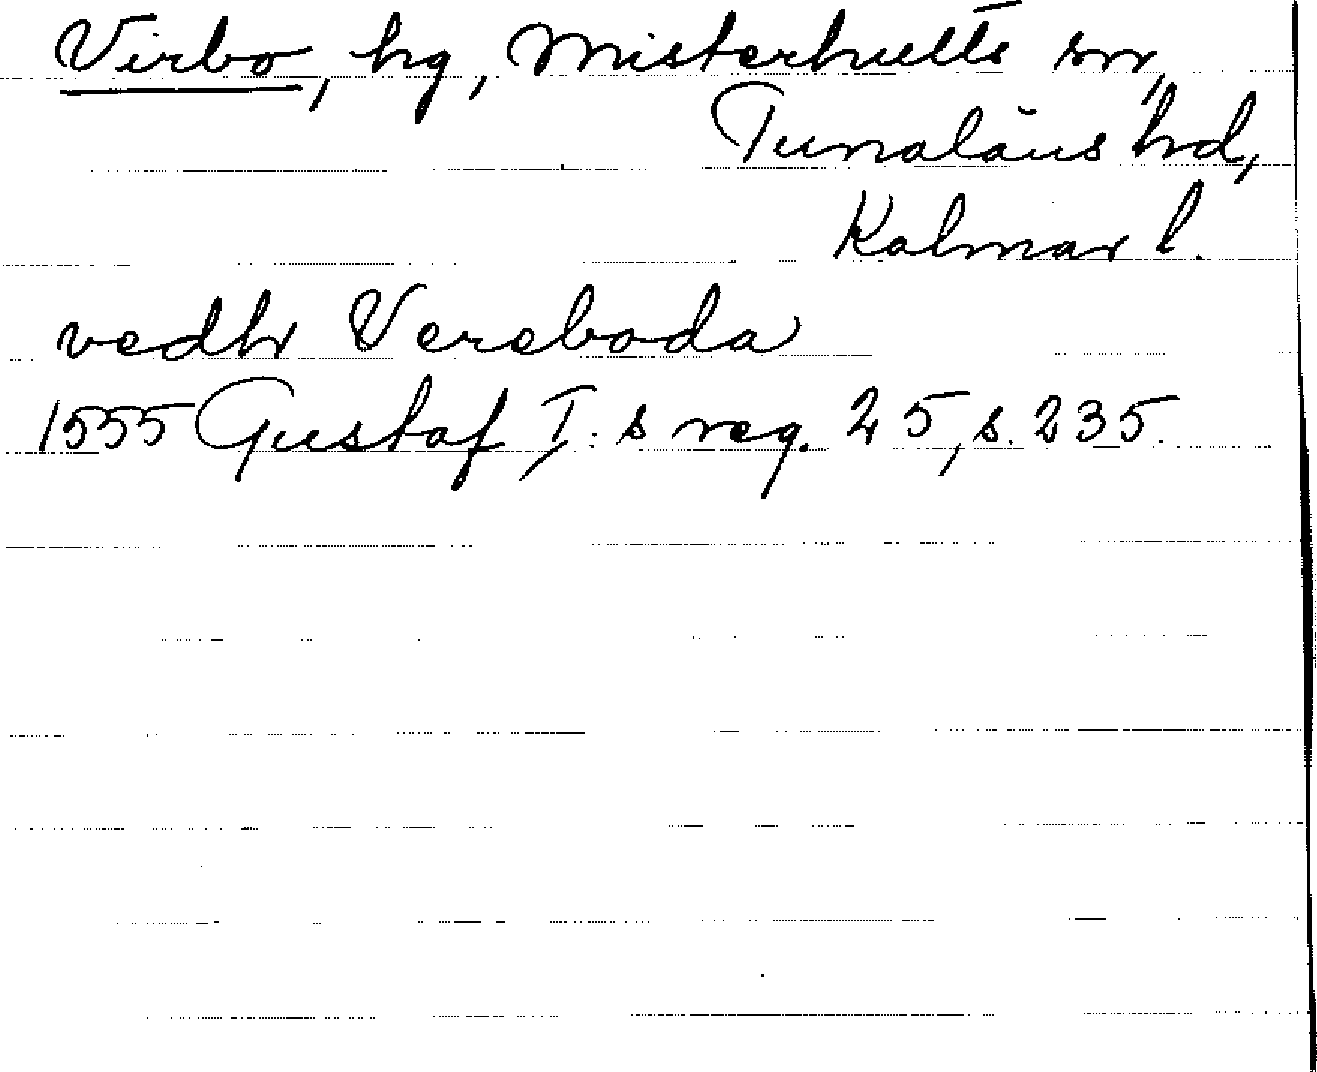 Virbo, hg, Misterhults sn,
Tunaläns hd,
Kalmar l.
vedhr Vereboda
1555 Gustaf I:s reg. 25, s. 235.